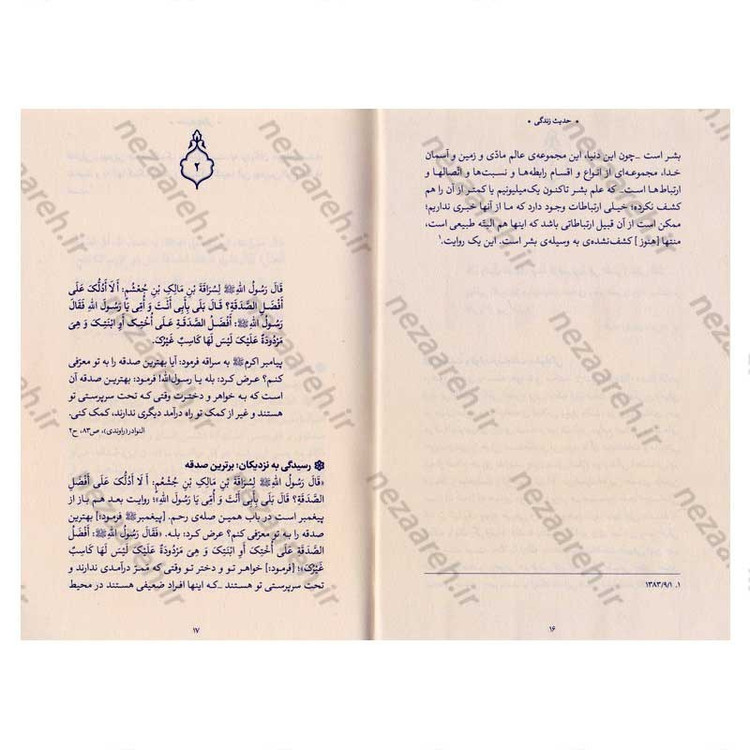 • حدیث زندگی •
بشر است ــ چون این دنیا، این مجموعه‌ی عالم مادّی و زمین و آسمان
خدا، مجموعه‌ای از انواع و اقسام رابطه‌ها و نسبت‌ها و اتّصالها و
ارتباط‌ها است ــ که علم بشر تاکنون یک‌میلیونیم یا کمتر از آن را هم
کشف نکرده؛ خیلی ارتباطات وجود دارد که ما از آنها خبری نداریم؛
ممکن است از آن قبیل ارتباطاتی باشد که اینها هم البتّه طبیعی است،
منتها [هنوز] کشف‌نشده‌ی به وسیله‌ی بشر است. این یک روایت.۱
۱. ۱۳۸۳/۹/۱
۱۶
۲
قالَ رَسُولُ اللهِ ﷺ لِسُراقَةَ بْنِ مالِکِ بْنِ جُعْشُمٍ: أَ لَا أَدُلُّکَ عَلَى
أَفْضَلِ الصَّدَقَةِ؟ قالَ بَلَى بِأَبِي أَنْتَ وَ أُمِّي یَا رَسُولَ اللهِ فَقالَ
رَسُولُ اللهِ ﷺ: أَفْضَلُ الصَّدَقَةِ عَلَى أُخْتِکَ أَوِ ابْنَتِکَ وَ هِيَ
مَرْدُودَةٌ عَلَیْکَ لَیْسَ لَهَا کَاسِبٌ غَیْرُکَ.
پیامبر اکرم ﷺ به سراقه فرمود: آیا بهترین صدقه را به تو معرّفی
کنم؟ عرض کرد: بله یا رسول‌الله! فرمود: بهترین صدقه آن
است که به خواهر و دخترت وقتی که تحت سرپرستی تو
هستند و غیر از کمک تو راه درآمد دیگری ندارند، کمک کنی.
النوادر(راوندی)، ص۸۳، ح۲
رسیدگی به نزدیکان؛ برترین صدقه
«قالَ رَسُولُ اللهِ ﷺ لِسُراقَةَ بْنِ مالِکِ بْنِ جُعْشُمٍ: أَ لَا أَدُلُّکَ عَلَى أَفْضَلِ
الصَّدَقَةِ؟ قالَ بَلَى بِأَبِي أَنْتَ وَ أُمِّي یَا رَسُولَ اللهِ»؛ روایت بعد هم باز از
پیغمبر است در باب همین صله‌ی رحم. [پیغمبر ﷺ فرمود:] بهترین
صدقه را به تو معرّفی کنم؟ عرض کرد: بله. «فَقالَ رَسُولُ اللهِ ﷺ: أَفْضَلُ
الصَّدَقَةِ عَلَى أُخْتِکَ أَوِ ابْنَتِکَ وَ هِيَ مَرْدُودَةٌ عَلَیْکَ لَیْسَ لَهَا کَاسِبٌ
غَیْرُکَ»؛ [فرمود:] خواهر تو و دختر تو وقتی که ممرّ درآمدی ندارند و
تحت سرپرستی تو هستند ــ که اینها افراد ضعیفی هستند در محیط
۱۷
nezaareh.ir